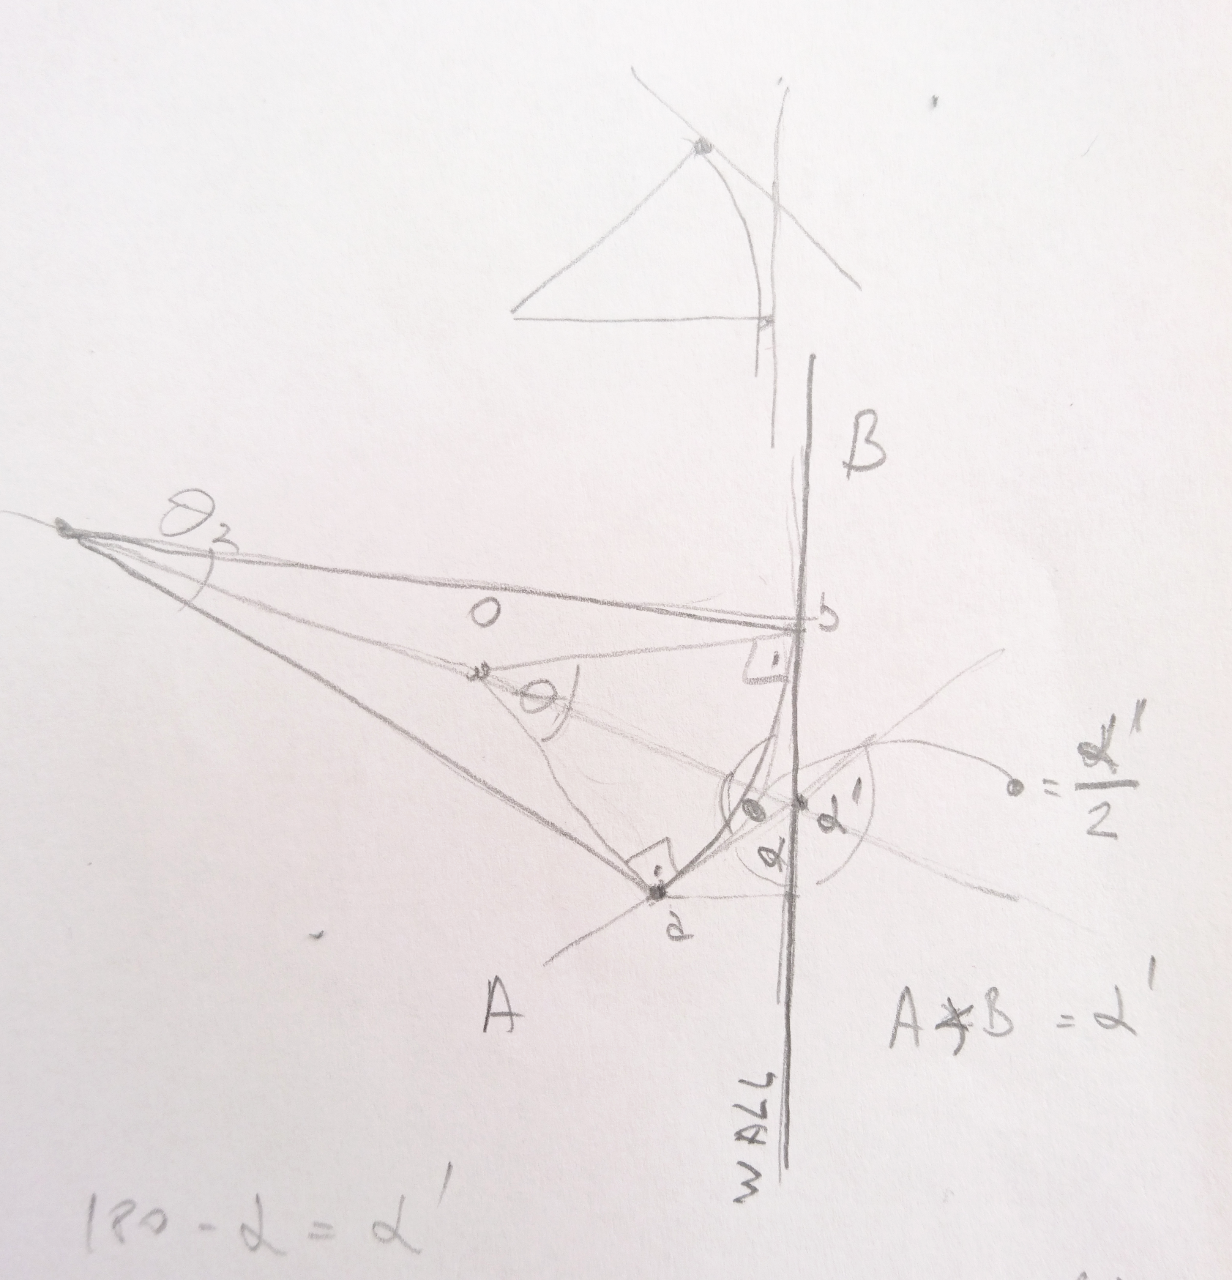 B
θ₂
O
b
θ
= α'/2
α'
α
a
A
A∢B = α'
WALL
180 - α = α'